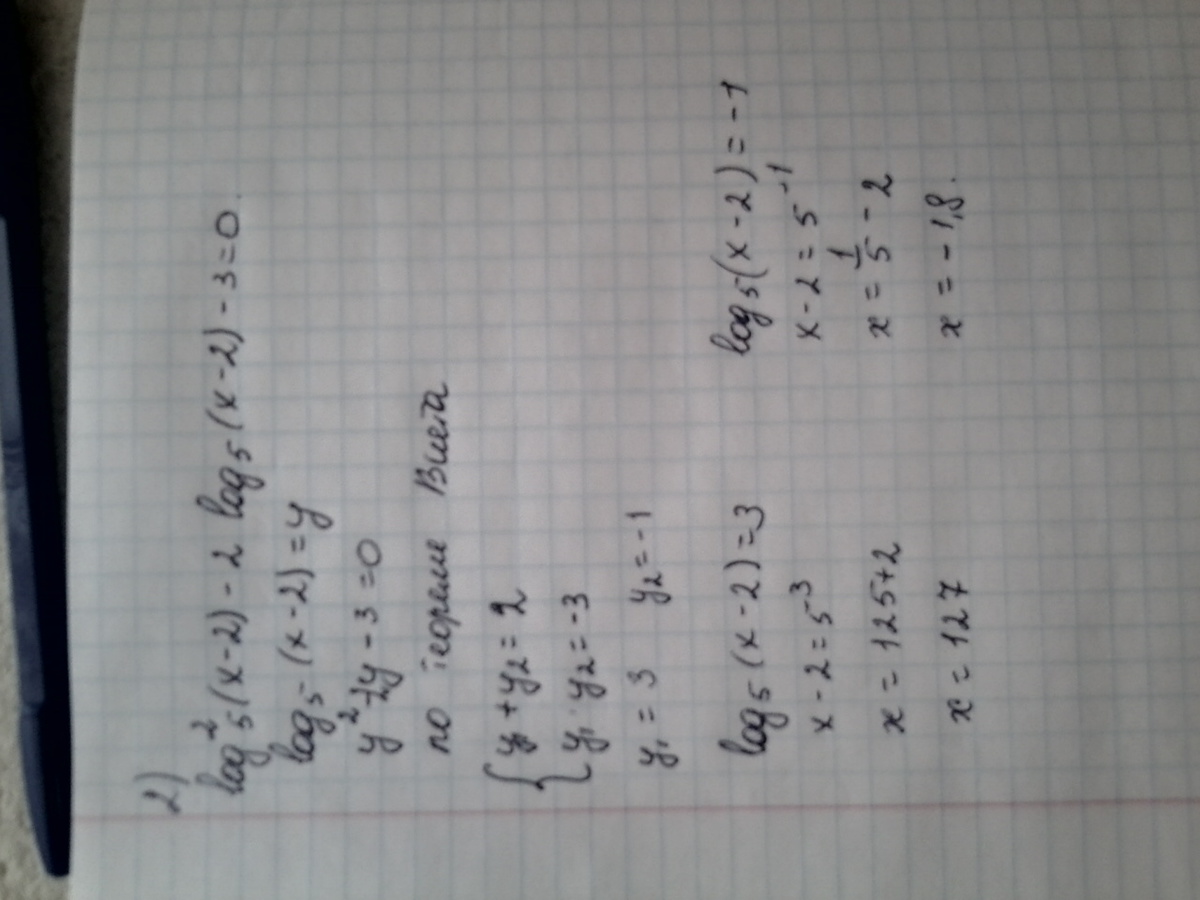 2)
log²₅(x-2) - 2 log₅(x-2) - 3 = 0.
log₅(x-2) = y
y² - 2y - 3 = 0
по теореме Виета
{ y₁ + y₂ = 2
y₁ · y₂ = -3
y₁ = 3 y₂ = -1
log₅(x-2) = 3
x - 2 = 5³
x = 125+2
x = 127
log₅(x-2) = -1
x - 2 = 5⁻¹
x = 1/5 - 2
x = -1,8.